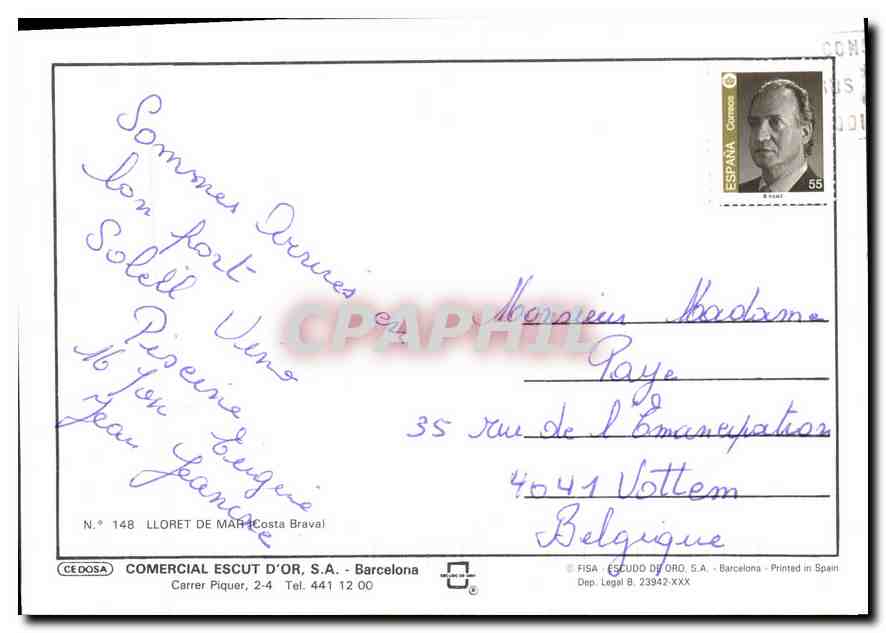 CONS
ESPAÑA Correos
55
Sommes Arrivés en
bon port
Soleil Vino
Piscine
M Yon Eugenie
Jean Jeannine
Monsieur Madame
Paye
35 rue de l'Emancipation
4041 Vottem
Belgique
CPAPHIL
N.° 148 LLORET DE MAR (Costa Brava)
CEDOSA COMERCIAL ESCUT D'OR, S.A. - Barcelona
Carrer Piquer, 2-4 Tel. 441 12 00
ESCUDO DE ORO ®
© FISA - ESCUDO DE ORO, S.A. - Barcelona - Printed in Spain
Dep. Legal B. 23942-XXX